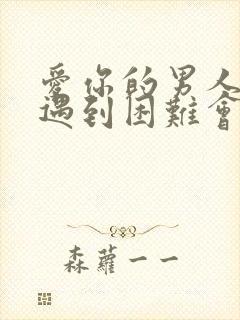 愛你的男人
遇到困難會
森蘿一一